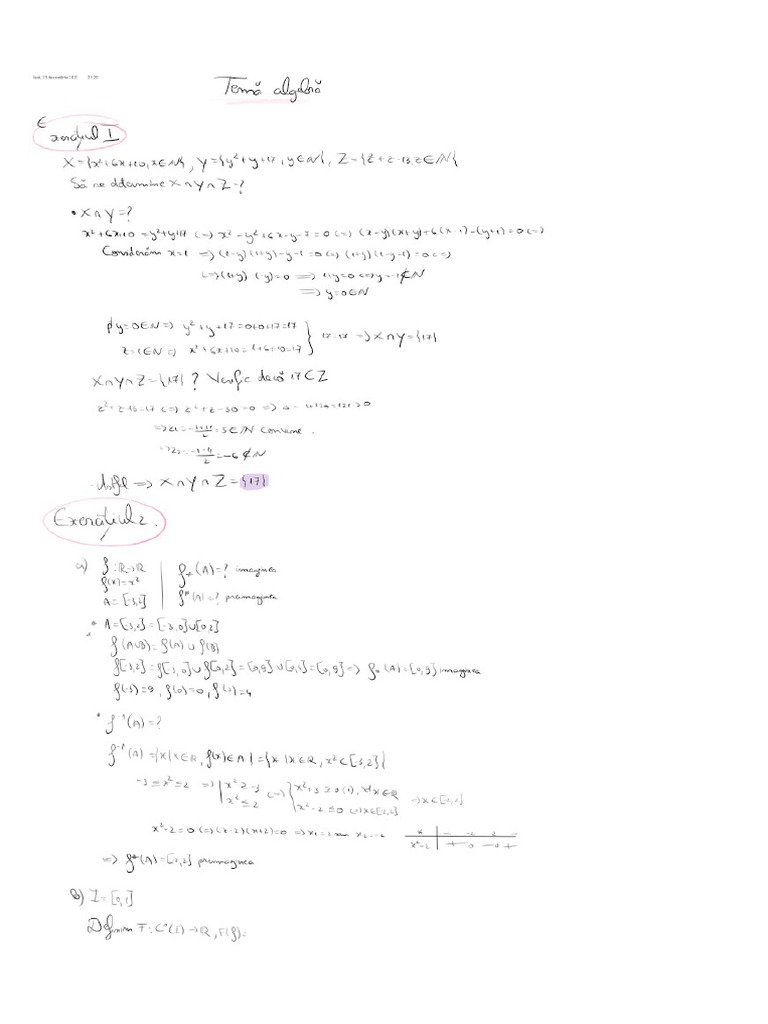 Temă algebră
Exercițiul I
X={x²+6x+10, x∈N}, Y={y²+y+17, y∈N}, Z={z²+z-13, z∈N}
Să se determine X∩Y∩Z=?
• X∩Y=?
x²+6x+10=y²+y+17 (=) x²-y²+6x-y-7=0 (=) (x-y)(x+y)+6(x-1)-(y+1)=0 (=)
Considerăm x=1 => (1-y)(1+y)-y-1=0 (=) (1+y)(1-y-1)=0 (=)
(=) (1+y)(-y)=0 => 1+y=0 (=) y=-1∉N
=> y=0∈N
y=0∈N => y²+y+17=0+0+17=17
x=1∈N => x²+6x+10=1+6+10=17
17=17 => X∩Y={17}
X∩Y∩Z={17}? Verific dacă 17∈Z
z²+z-13=17 (=) z²+z-30=0 => Δ= 1+120=121>0
=> z1=(-1+11)/2=5∈N convine.
=> z2=(-1-11)/2=-6∉N
Astfel => X∩Y∩Z={17}
Exercițiul 2.
a) f:R→R
f(x)=x²
A=[-3,2]
f*(A)=? imaginea
f*(A)=? preimaginea
• A=[-3,2]=[-3,0]∪[0,2]
f(A∪B)=f(A)∪f(B)
f(-3)=9, f(0)=0, f(2)=4
• f⁻¹(A)=?
f⁻¹(A)={x|x∈R, f(x)∈A}={x|x∈R, x²∈[-3,2]}
-3≤x²≤2 =>
x²≥-3
x²≤2
(=)
x²+3≥0 (1), ∀x∈R
x²-2≤0
x²-2=0 (=) (x-2)(x+2)=0
=> f*(A)=[-2,2] preimaginea
b) I=[0,1]
Definim F:C°(I)→R, F(f)=